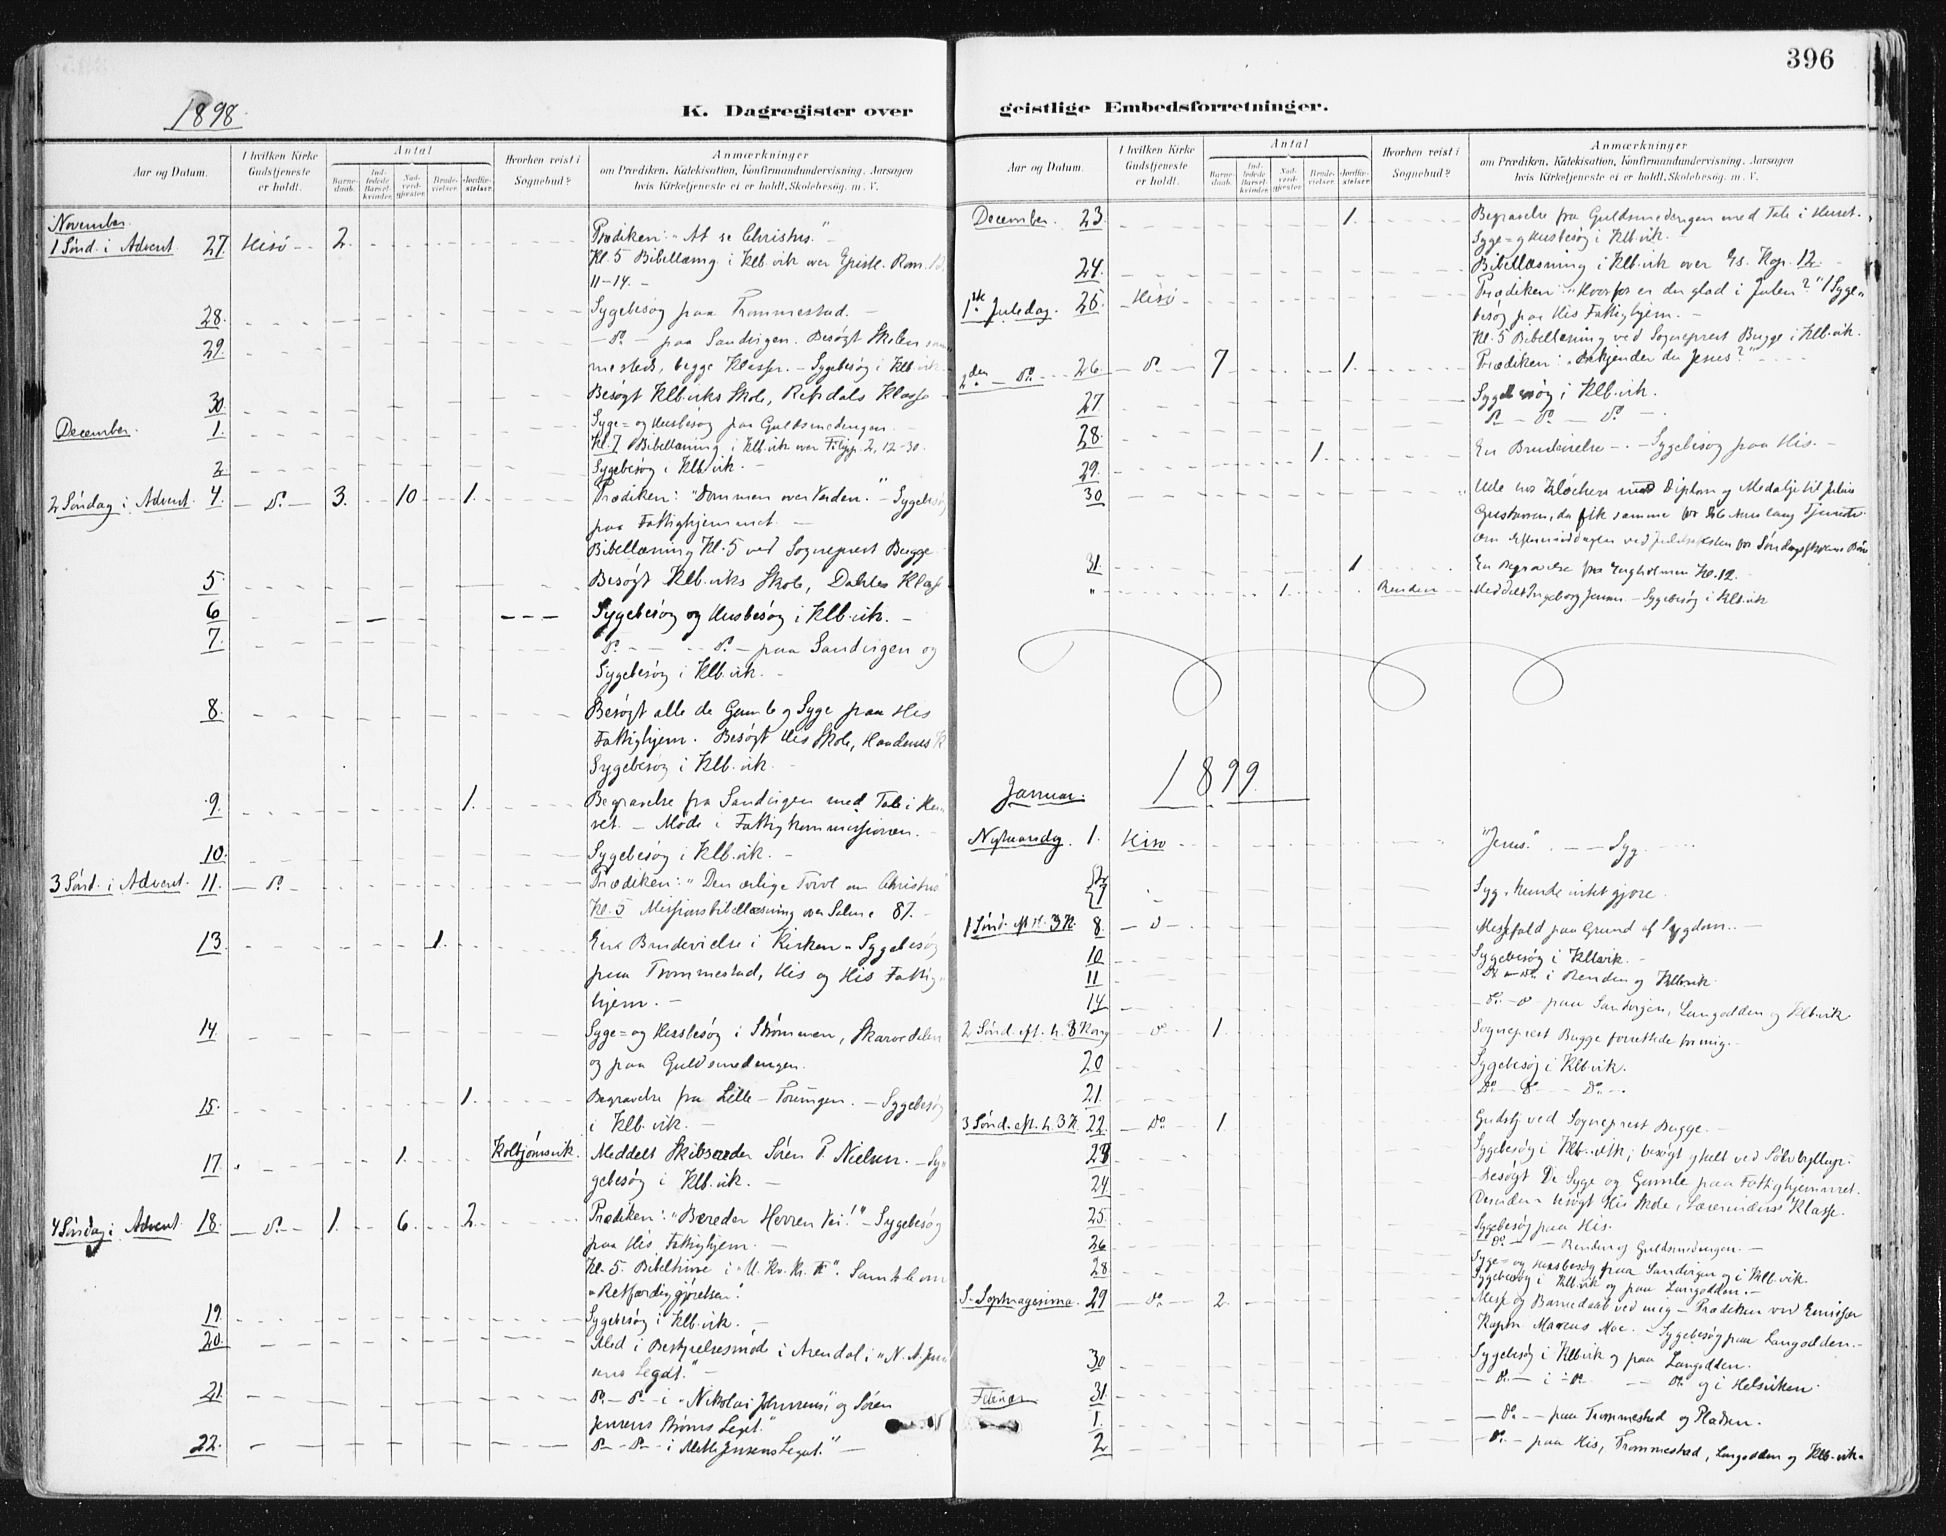 396
1898.
K. Dagregister over geistlige Embedsforretninger.
Aar og Datum.
I hvilken Kirke Gudstjeneste er holdt.
Antal
Barnedaab.
Indledede Barselkvinder.
Nadverdgjester.
Brudevielser.
Jordfæstelser.
Hvorhen reist i Sognebud?
Anmærkninger
om Prædiken, Katekisation, Konfirmandundervisning, Aarsagen
hvis Kirketjeneste ei er holdt, Skolebesøg, m. V.
November.
1 Sønd. i Advent. 27. Hisø 2. Prædiken: "At se Christus."
Kl. 5 Bibellæsng i Klb.vik over Epistl. Rom.
11-14.
28. Sygebesøg paa Trommestad.
29. - Do - paa Sandvigen. Besøgt Skolen
mesteds, begge Klasser. - Sygebesøg i Klb.vik
30. Besøgt Klb.viks Skole, Refsdals Klasse
December. 1. Syge= og Husbesøg paa Guldsmedengen.
Kl. 7 Bibellæsning i Klb.vik over Filipp. 2, 12-30.
2. Sygebesøg i Klb.vik.
2 Søndag i Advent. 4. - Do - 3. 10 1. Prædiken: "Dommen over Verden." Sygebesøg
paa Fattighjemmet.
Bibellæsning Kl. 5 ved Sogneprest Bugge
5. Besøgt Klb.viks Skole, Dahles Klasse
6. Sygebesøg og Husbesøg i Klb.vik.
7. Do - Do - paa Sandvigen og
Sygebesøg i Klb.vik.
8. Besøgt alle de Gamle og Syge paa His
Fattighjem. Besøgt His Skole,
Sygebesøg i Klb.vik.
9. 1. Begravelse fra Sandvigen med Tale i Hu-
set. - Møde i Fattigkommissionen.
10. Sygebesøg i Klb.vik.
3 Sønd. i Advent. 11. - Do - Prædiken: "Den ærlige Tvivl om Christus"
Kl. 5 Missionsbibellæsning over Salme 87.
13. 1. En Brudevielse i Kirken - Sygebesøg
paa Trommestad, His og His Fattig-
hjem.
14. Syge= og Husbesøg i Strømmen,
og paa Guldsmedengen.
15. 1. Begravelse fra Lille-Torungen. - Sygebesøg
i Klb.vik.
17. 1. Kolbjørnsvik. Meddelt Skibsreder Søren P. Nielsen. - Sy-
gebesøg i Klb.vik.
4 Søndag i Advent. 18. - Do - 1. 6. 2. Prædiken: "Bereder Herren Vei!" - Sygebesøg
paa His Fattighjem.
Kl. 5. Bibeltime i "U. Kv. Kr. F". Samtale om
"Retfærdiggjørelsen."
19. Sygebesøg i Klb.vik.
20. Med i Bestyrelsesmøde i Arendal i "N. A. Jen
sens Legat."
21. Do - Do - i "Nikolai Johnsens" og Søren
Jensens Strøms Legat."
22. Do - Do - i Mette Jensens Legat."
December. 23. 1. Begravelse fra Guldsmedengen med Tale i Huset.
Syge= og Husbesøg i Klb.vik.
24. Bibellæsning i Klb.vik over Es. Kap. 12.
1ste Juledag. 25. Hisø Prædiken: "Hvorfor er du glad i Julen?" / Syge-
besøg paa His Fattighjem.
Kl. 5 Bibellæsning ved Sogneprest Bugge i Klb.vik.
2den - Do - 26. - Do - 7 1. Prædiken: "Bekjender du Jesus?"
Sygebesøg i Klb.vik.
27. Do - Do - Do
28. 1. En Brudevielse - Sygebesøg paa His.
29.
30 Ude hos Kløcker med Diplom og Medalje til
Gustavsen, da fik samme for Aars lang Tjeneste
Om Eftermiddagen ved Juletræfesten for Søndagsskolens Børn
31. 1. En Begravelse fra Engholmen Kl. 12.
" 1. Renden Meddelt Ingeborg Jensen. - Sygebesøg i Klb.vik
1899.
Januar.
Nytaarsdag 1. Hisø "Jesus". - Syg.
Syg. Kunde intet gjøre.
1 Sønd. eft. H. 3 K. 8. - Do Messefald paa Grund af Sygdom.
10 Sygebesøg i Klb.vik.
11 Do - Do. i Renden og Klb.vik.
14 - Do. - Do paa Sandvigen, Langodden og Klb.vik
2 Sønd. eft. h. 3 Kong - Do - 1. Sogneprest Bugge forrettede for mig.
20 Sygebesøg i Klb.vik.
21. Do - Do - Do.
3 Sønd. eft. h. 3 K. 22. - Do - 1. Gudstj. ved Sogneprest Bugge.
23 Sygebesøg i Klb.vik, besøgt ved Sølvbryllup.
24 Besøgt De Syge og Gamle paa Fattighjemmet.
Desuden besøgt His Skole, Lærerindens Klasse.
25. Sygebesøg paa His.
26 - Do - Renden og Guldsmedengen.
Syge= og Husbesøg paa Sandvigen og i Klb.vik.
28 Sygebesøg i Klb.vik og paa Langodden.
S. Septuagesima. 29 - Do - 2. Messe og Barnedaab ved mig - Prædiken ved Emissær
Kaptn Marcus Moe. - Sygebesøg paa Langodden.
30 Sygebesøg i Klb.vik og paa Langodden.
31. - Do - i - Do - Do og i Helsviken.
Februar 1. - Do. - paa Trommestad og Pladsen.
2 - Do. - paa His, Trommestad, Langodden og Klb.vik.